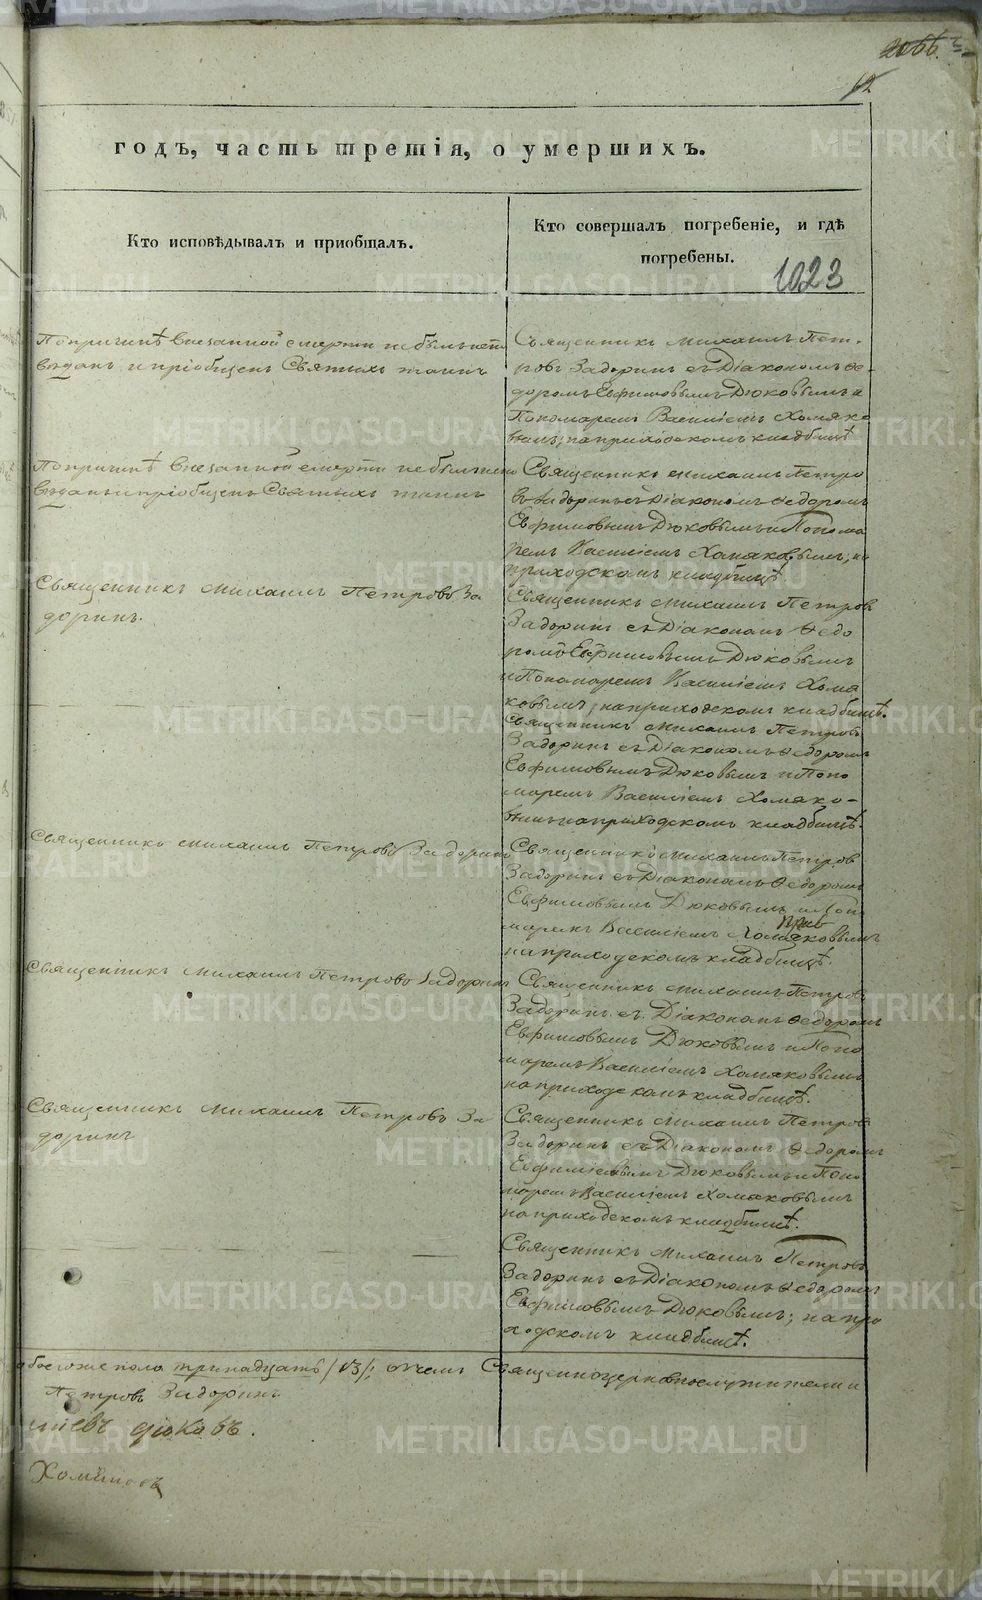 годъ, часть третія, о умершихъ.
Кто исповѣдывалъ и пріобщалъ.
Кто совершалъ погребеніе, и гдѣ
погребены.
1023
По причинѣ внезапной смерти не былъ испо
вѣданъ и пріобщенъ Святыхъ таинъ
Священникъ Михаилъ Пет-
ровъ Задоринъ съ Діакономъ Ѳе-
доромъ Евфимовымъ Дюковымъ и
Пономаремъ Василіемъ Хомяко
вымъ; на приходскомъ кладбищѣ
По причинѣ внезапной смерти не былъ испо
вѣданъ и пріобщенъ Святыхъ таинъ
Священникъ Михаилъ Петро
въ Задоринъ съ Діакономъ Ѳедоромъ
Евфимовымъ Дюковымъ и Понома
ремъ Василіемъ Хомяковымъ; на
приходскомъ кладбищѣ
Священникъ Михаилъ Петровъ За
доринъ.
Священникъ Михаилъ Петровъ
Задоринъ съ Діакономъ Ѳедо
ромъ Евфимовымъ Дюковымъ
и Пономаремъ Василіемъ Хомя
ковымъ; на приходскомъ кладбищѣ.
Священникъ Михаилъ Петровъ
Задоринъ съ Діакономъ Ѳедоромъ
Евфимовымъ Дюковымъ и Поно
маремъ Василіемъ Хомяко-
вымъ на приходскомъ кладбищѣ.
Священникъ Михаилъ Петровъ Задоринъ
Священникъ Михаилъ Петров
Задоринъ съ Діакономъ Ѳедоромъ
Евфимовымъ Дюковымъ и Поно
маремъ Василіемъ Хомяковымъ
на приходскомъ кладбищѣ.
Священникъ Михаилъ Петровъ Задоринъ
Священникъ Михаилъ Петровъ
Задоринъ съ Діакономъ Ѳедоромъ
Евфимовымъ Дюковымъ и Поно
маремъ Василіемъ Хомяковымъ
на приходскомъ кладбищѣ.
Священникъ Михаилъ Петровъ За
доринъ
Священникъ Михаилъ Петровъ
Задоринъ съ Діакономъ Ѳедоромъ
Евфиміевымъ Дюковымъ и Поно
маремъ Василіемъ Хомяковымъ
на приходскомъ кладбищѣ.
Священникъ Михаилъ Петровъ
Задоринъ съ Діакономъ Ѳедоромъ
Евфимовымъ Дюковымъ; на при
ходскомъ кладбищѣ.
обоего же пола тринадцать /13/; въ чемъ Священноцерковнослужители и
Петровъ Задоринъ
Дюковъ.
Хомяковъ
METRIKI.GASO-URAL.RU